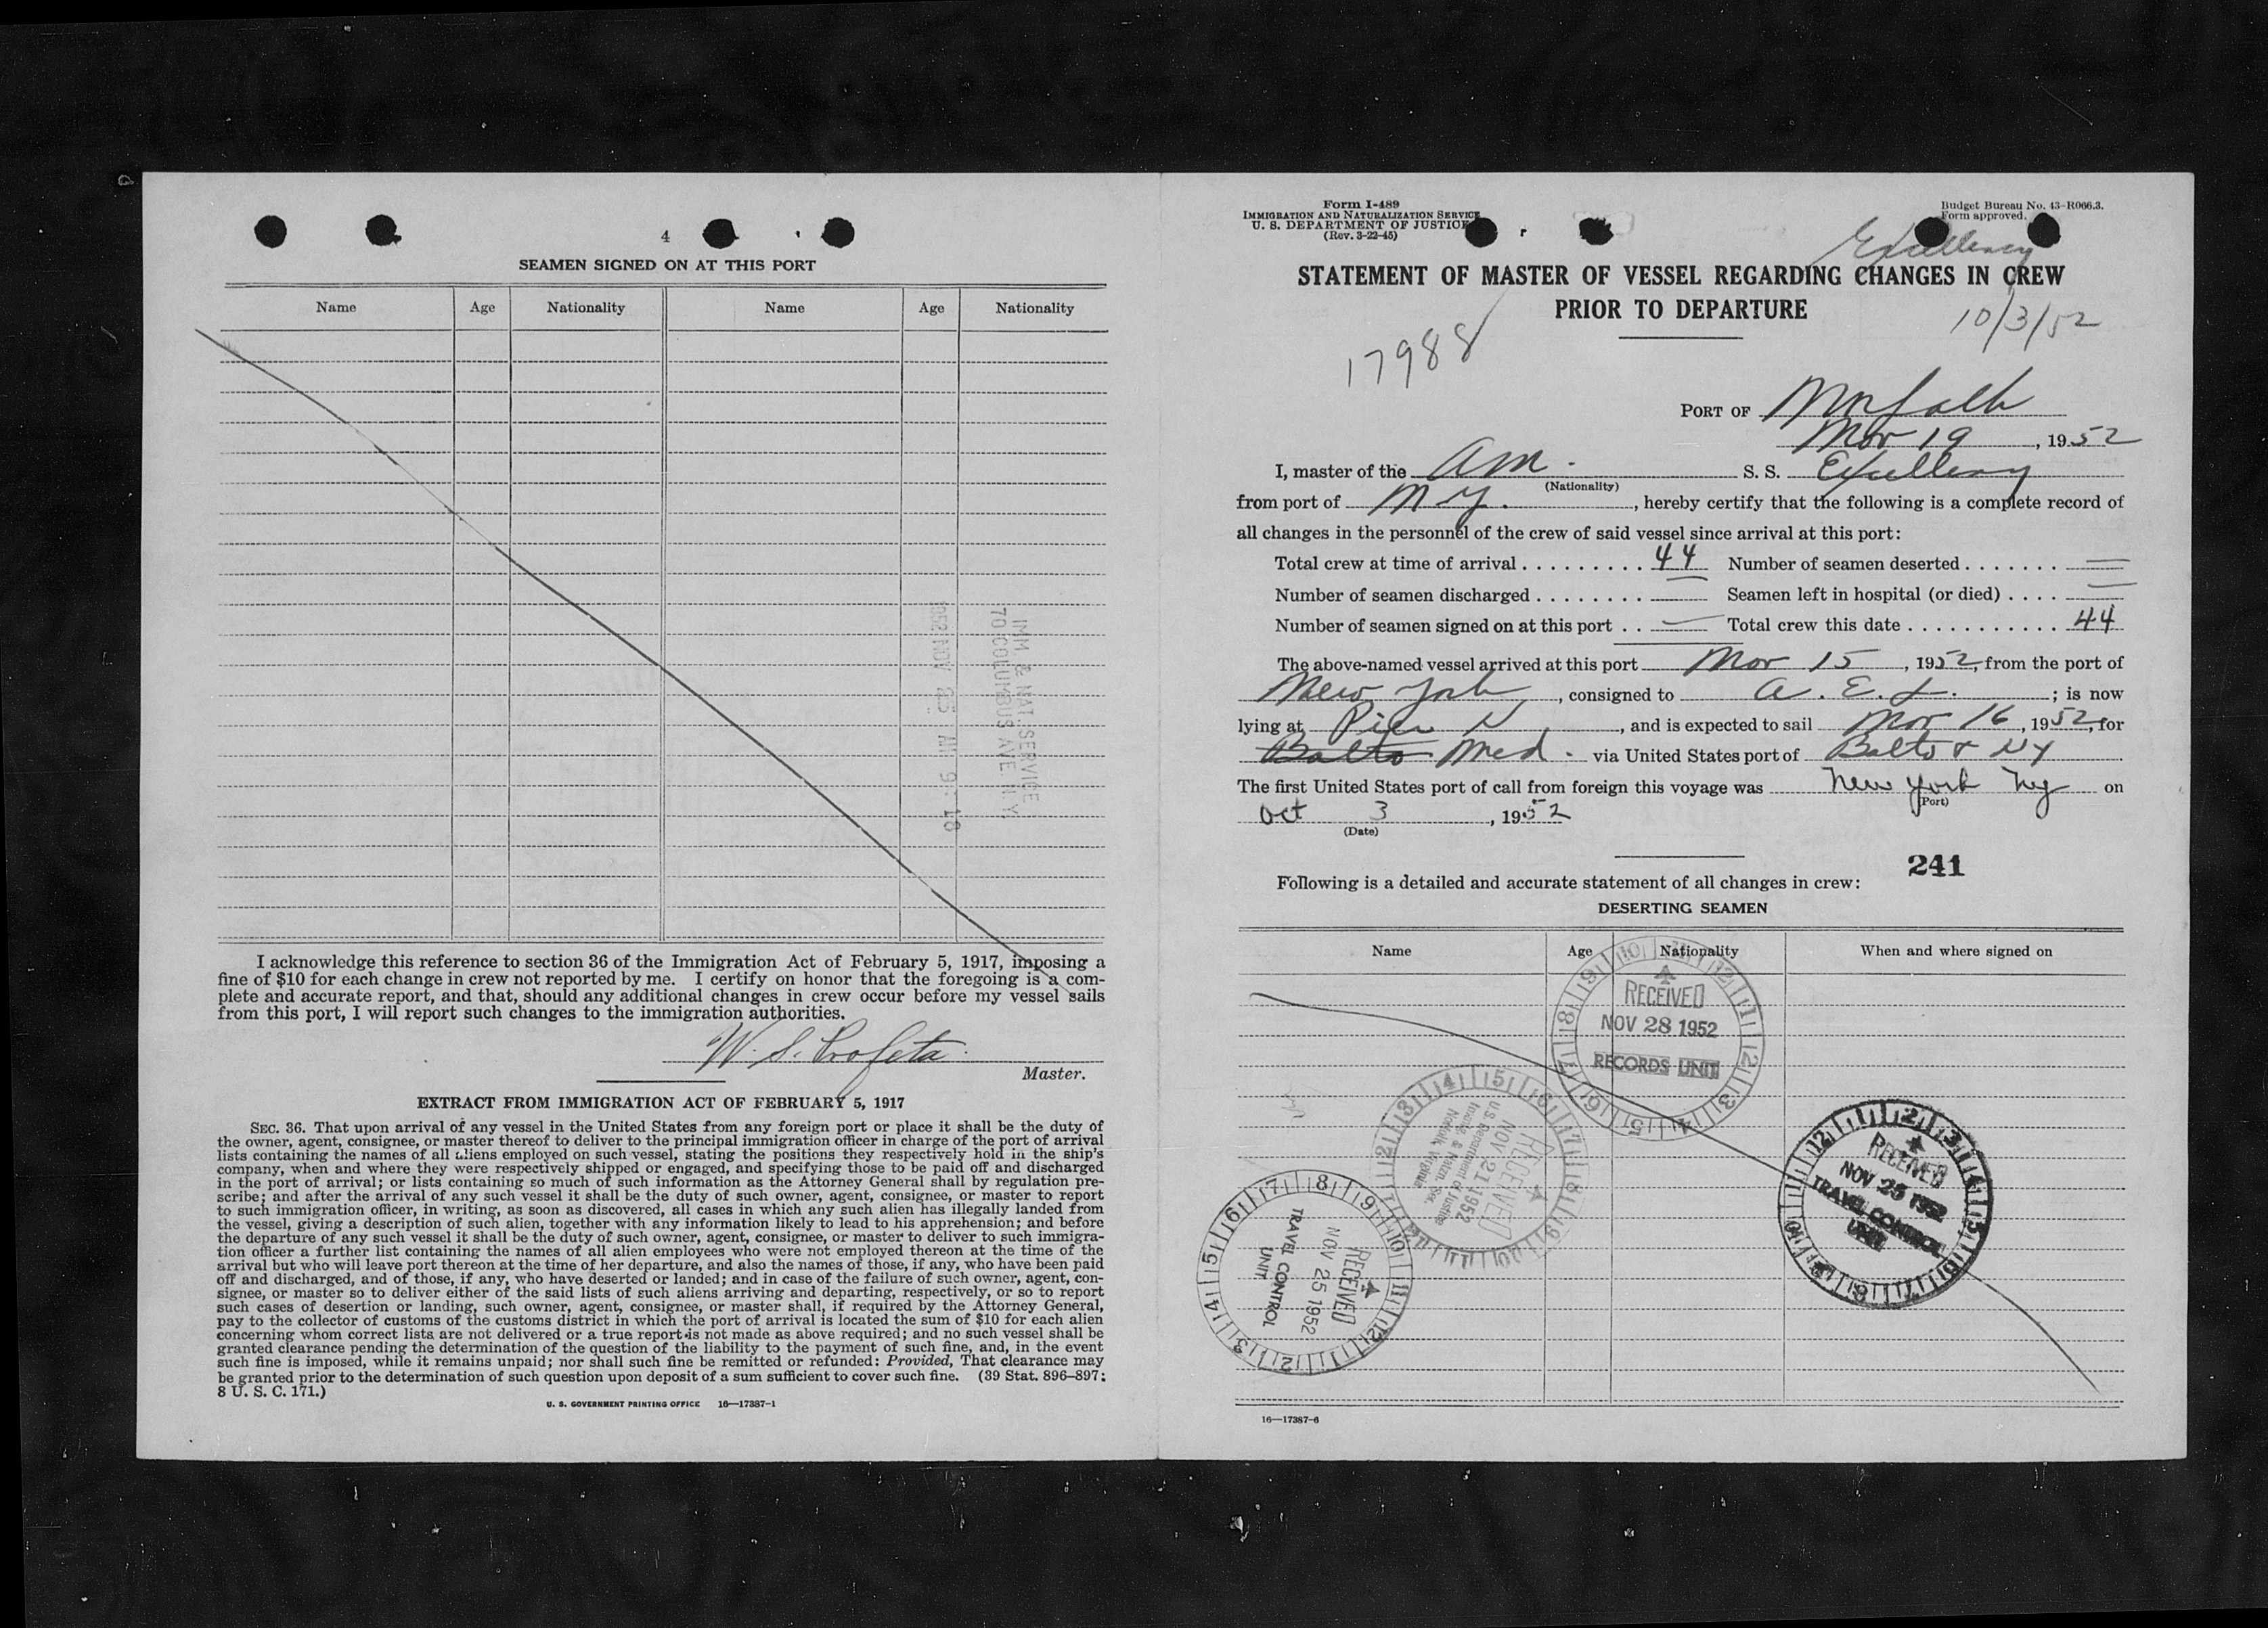 4
SEAMEN SIGNED ON AT THIS PORT
Name Age Nationality Name Age Nationality
IMM & NAT. SERVICE
70 COLUMBUS AVE N.Y.
1952 NOV 25 AM 9: 18
I acknowledge this reference to section 36 of the Immigration Act of February 5, 1917, imposing a
fine of $10 for each change in crew not reported by me. I certify on honor that the foregoing is a com-
plete and accurate report, and that, should any additional changes in crew occur before my vessel sails
from this port, I will report such changes to the immigration authorities.
W. S. Profeta
Master.
EXTRACT FROM IMMIGRATION ACT OF FEBRUARY 5, 1917
SEC. 36. That upon arrival of any vessel in the United States from any foreign port or place it shall be the duty of
the owner, agent, consignee, or master thereof to deliver to the principal immigration officer in charge of the port of arrival
lists containing the names of all aliens employed on such vessel, stating the positions they respectively hold in the ship's
company, when and where they were respectively shipped or engaged, and specifying those to be paid off and discharged
in the port of arrival; or lists containing so much of such information as the Attorney General shall by regulation pre-
scribe; and after the arrival of any such vessel it shall be the duty of such owner, agent, consignee, or master to report
to such immigration officer, in writing, as soon as discovered, all cases in which any such alien has illegally landed from
the vessel, giving a description of such alien, together with any information likely to lead to his apprehension; and before
the departure of any such vessel it shall be the duty of such owner, agent, consignee, or master to deliver to such immigra-
tion officer a further list containing the names of all alien employees who were not employed thereon at the time of the
arrival but who will leave port thereon at the time of her departure, and also the names of those, if any, who have been paid
off and discharged, and of those, if any, who have deserted or landed; and in case of the failure of such owner, agent, con-
signee, or master so to deliver either of the said lists of such aliens arriving and departing, respectively, or so to report
such cases of desertion or landing, such owner, agent, consignee, or master shall, if required by the Attorney General,
pay to the collector of customs of the customs district in which the port of arrival is located the sum of $10 for each alien
concerning whom correct lists are not delivered or a true report is not made as above required; and no such vessel shall be
granted clearance pending the determination of the question of the liability to the payment of such fine, and, in the event
such fine is imposed, while it remains unpaid; nor shall such fine be remitted or refunded: Provided, That clearance may
be granted prior to the determination of such question upon deposit of a sum sufficient to cover such fine. (39 Stat. 896–897;
8 U. S. C. 171.)
U. S. GOVERNMENT PRINTING OFFICE 16—17387-1
Form I-489
IMMIGRATION AND NATURALIZATION SERVICE
U. S. DEPARTMENT OF JUSTICE
(Rev. 3-22-45)
Budget Bureau No. 43-R066.3.
Form approved.
Excellency
STATEMENT OF MASTER OF VESSEL REGARDING CHANGES IN CREW
PRIOR TO DEPARTURE
10/3/52
17988
PORT OF Norfolk
Nov 19, 1952
I, master of the Am. S. S. Excellency
(Nationality)
from port of N Y., hereby certify that the following is a complete record of
all changes in the personnel of the crew of said vessel since arrival at this port:
Total crew at time of arrival . . . . . . . . . 44 Number of seamen deserted . . . . . . . —
Number of seamen discharged . . . . . . . . Seamen left in hospital (or died) . . . . —
Number of seamen signed on at this port . . — Total crew this date . . . . . . . . . . . 44
The above-named vessel arrived at this port Nov 15, 1952, from the port of
New York, consigned to A. E. L.; is now
lying at Pier N, and is expected to sail Nov 16, 1952, for
Balto Med. via United States port of Balto & NY
The first United States port of call from foreign this voyage was New York Ny on
(Port)
Oct 3, 1952
(Date)
241
Following is a detailed and accurate statement of all changes in crew:
DESERTING SEAMEN
Name Age Nationality When and where signed on
RECEIVED
NOV 28 1952
RECORDS UNIT
RECEIVED
NOV 21 1952
U.S. Department of Justice
Immig. & Natzn. Ser.
Norfolk, Virginia
RECEIVED
NOV 25 1952
TRAVEL CONTROL
UNIT
RECEIVED
NOV 25 1952
TRAVEL CONTROL
UNIT
16—17387-6